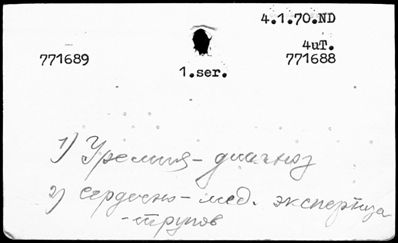 4.1.70.ND
4uT.
771689 771688
1.ser.
1) Уремия - диагноз
2) сердечно-мед. экспертиза
- трупов